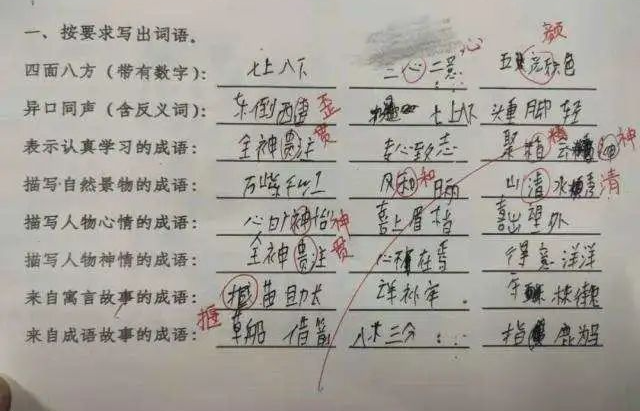 一、按要求写出词语。
四面八方（带有数字）：七上八下 三心二意 心 五 六色 颜
异口同声（含反义词）：东倒西 歪 七上八下 头重脚轻
表示认真学习的成语：全神贯注 贯 专心致志 聚精 会 神
描写自然景物的成语：万紫千红 风和 和 日丽 山清水 清
描写人物心情的成语：心旷神怡 神 喜上眉梢 喜出望外
描写人物神情的成语：全神贯注 贯 心 在焉 得意洋洋
来自寓言故事的成语：苗助长 羊补牢 守株待兔
来自成语故事的成语：草船借箭 入木三分 指鹿为马